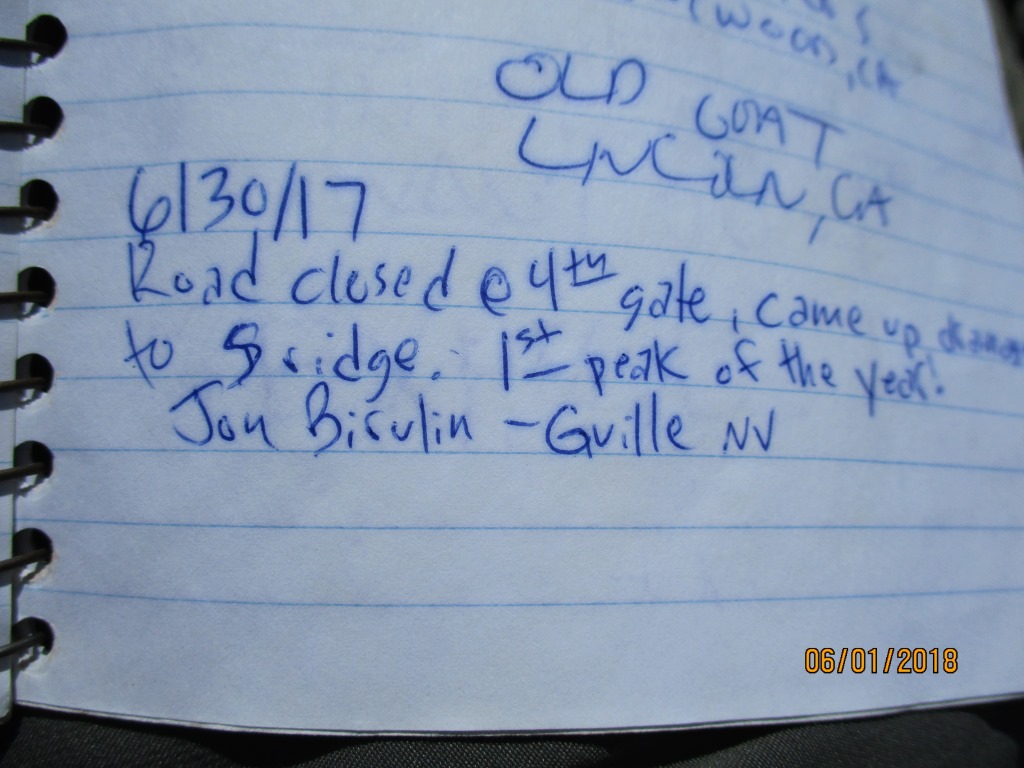 OLD GOAT
LINCOLN, CA
6/30/17
Road closed @ 4th gate, came up
to S ridge. 1st peak of the year!
Jon Bisulin - Gville NV
06/01/2018